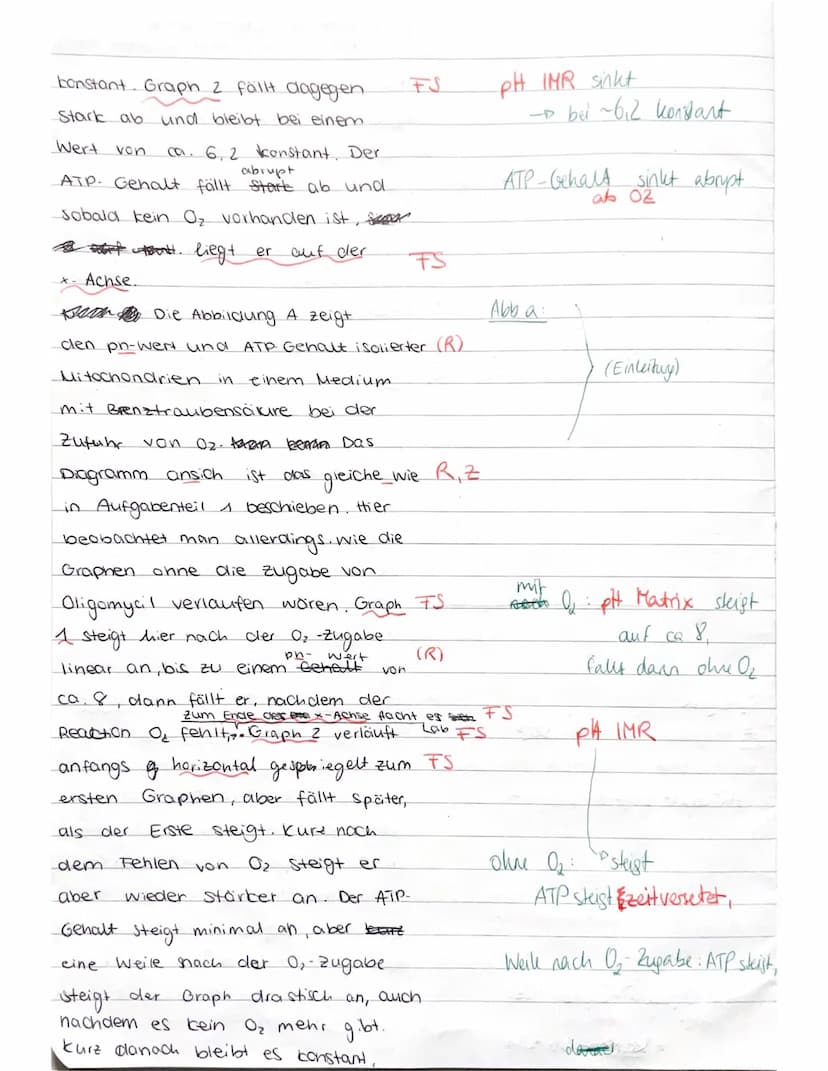 konstant. Graph 2 fällt dagegen FS pH IMR sinkt
stark ab und bleibt bei einem → bei ~6,2 konstant
Wert von ca. 6,2 konstant. Der
abrupt
ATP-Gehalt fällt stark ab und ATP-Gehalt sinkt abrupt
sobald kein O₂ vorhanden ist, ab O2
liegt er auf der FS
x-Achse.
Die Abbildung A zeigt Abb a:
den pH-Wert und ATP Gehalt isolierter (R)
Mitochondrien in einem Medium (Einleitung)
mit Brenztraubensäure bei der
Zufuhr von O₂. Das
Diagramm ansich ist das gleiche wie R, Z
in Aufgabenteil 1 beschieben. Hier
beobachtet man allerdings, wie die
Graphen ohne die Zugabe von
mit
Oligomycil verlaufen wären. Graph FS O₂: pH Matrix steigt
1 steigt hier nach der O₂-Zugabe auf ca 8,
pH-Wert (R)
linear an, bis zu einem Gehalt von fällt dann ohne O₂
ca. 8, dann fällt er, nachdem der
zum Ende der x-Achse flacht es FS
Lab
Reaction O₂ fehlt, Graph 2 verläuft FS pH IMR
anfangs horizontal gespiegelt zum FS
ersten Graphen, aber fällt später,
als der Erste steigt. Kurz nach
dem Fehlen von O₂ steigt er ohne O₂: steigt
aber wieder stärker an. Der ATP- ATP steigt zeitversetet,
Gehalt steigt minimal an, aber
eine Weile nach der O₂-Zugabe Weile nach O₂-Zugabe: ATP steigt,
steigt der Graph drastisch an, auch
nachdem es kein O₂ mehr gibt.
Kurz danach bleibt es konstant,